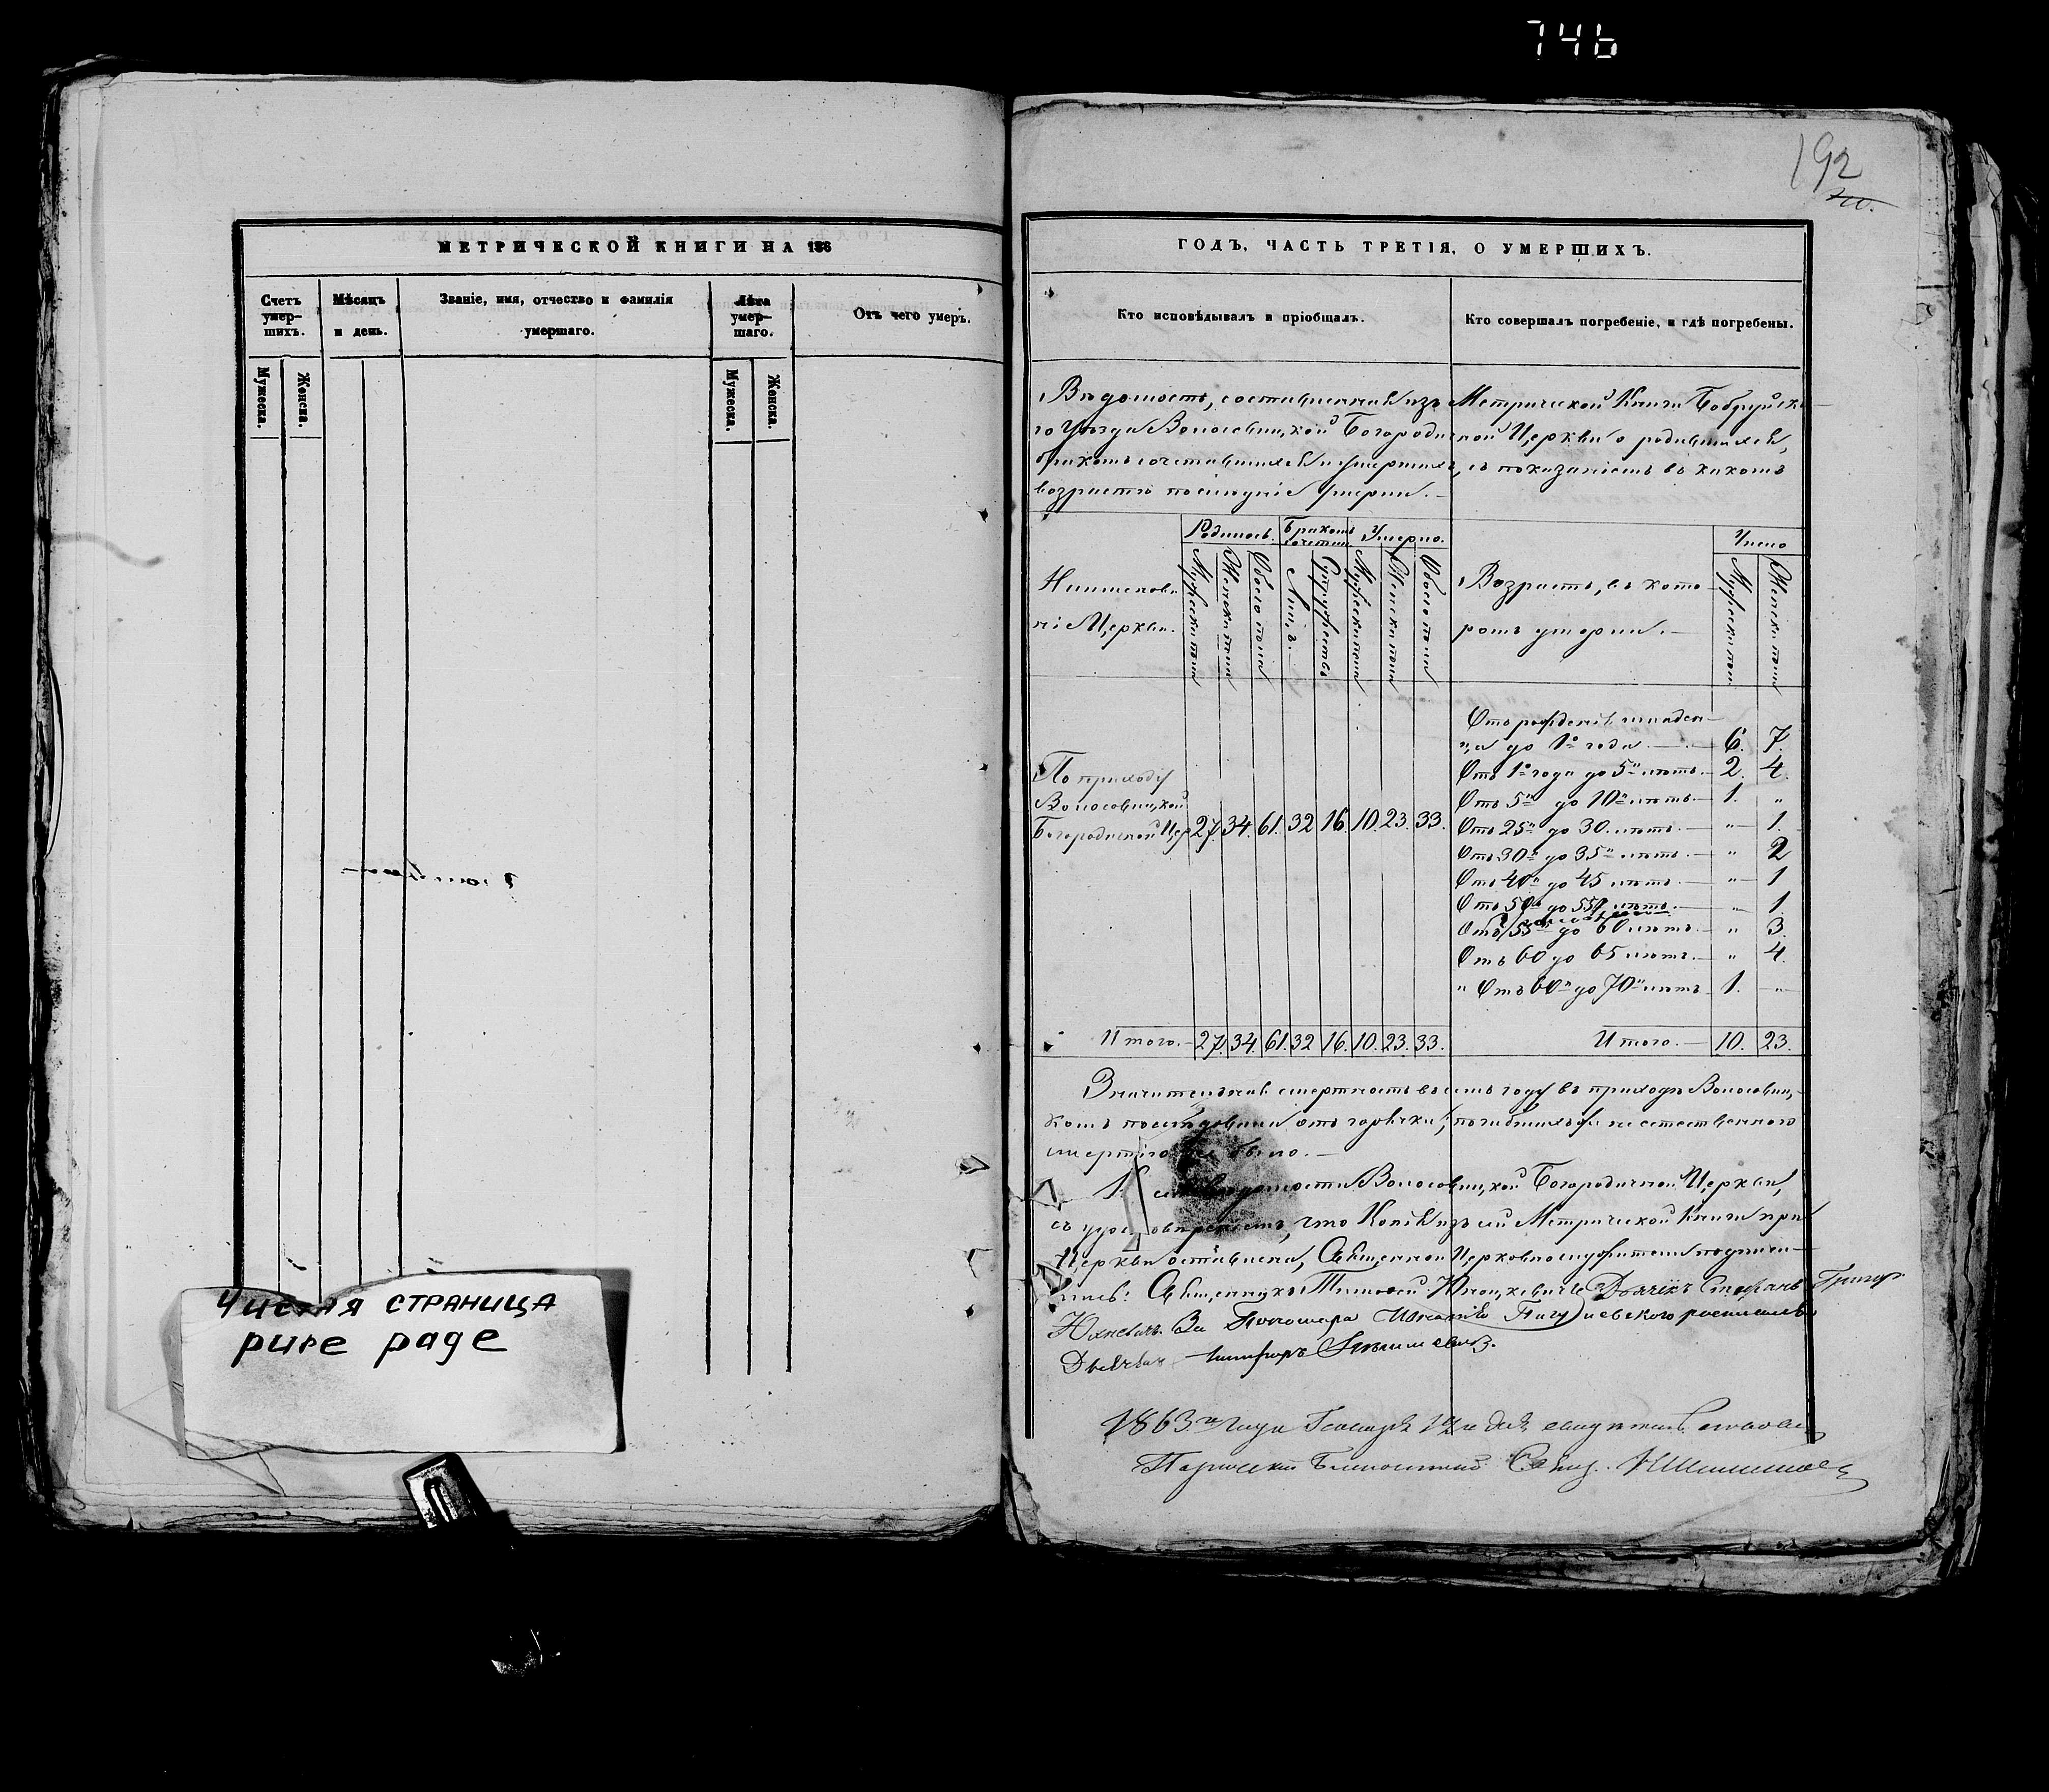 746
192
МЕТРИЧЕСКОЙ КНИГИ НА 186
Счетъ умер- шихъ.
Мѣсяцъ и день.
Званіе, имя, отчество и фамилія умершаго.
Лѣта умер- шаго.
Отъ чего умеръ.
Мужеска.
Женска.
Мужеска.
Женска.
Чистая страница
pure page
ГОДЪ, ЧАСТЬ ТРЕТІЯ, О УМЕРШИХЪ.
Кто исповѣдывалъ и пріобщалъ.
Кто совершалъ погребеніе, и гдѣ погребены.
Вѣдомость, составленная изъ Метрической Книги Бобруйска-
го Уѣзда Волосовицкой Богородичной Церкви о родившихся,
бракомъ сочетавшихся и умершихъ, съ показаніемъ въ какомъ
возрастѣ послѣдніе умерли.
Наименова-
ніе Церкви.
Родилось.
Бракомъ сочетан.
Умерло.
Мужеска пола
Женска пола
Обоего пола
Лицъ
Супружествъ
Мужеска пола
Женска пола
Обоего пола
Возрастъ, въ кото-
ромъ умерли.
Число
Мужеска пол.
Женска пола
По приходу
Волосовицкой
Богородичной Цер 27. 34. 61. 32 16. 10. 23. 33.
Отъ рожденія младен-
ца до 1го года. 6. 7.
Отъ 1го года до 5ти лѣтъ. 2. 4.
Отъ 5ти до 10ти лѣтъ. 1. "
Отъ 25ти до 30. лѣтъ. " 1.
Отъ 30ти до 35ти лѣтъ. " 2
Отъ 40ка до 45 лѣтъ. " 1
Отъ 50ти до 55 лѣтъ. " 1
Отъ 55ти до 60 лѣтъ. " 3.
Отъ 60 до 65 лѣтъ. " 4.
" Отъ 60ти до 70ти лѣтъ 1. "
Итого. 27. 34. 61. 32 16. 10. 23. 33.
Итого. 10. 23.
Значительная смертность въ семъ году въ приходѣ Волосовиц-
комъ послѣдовала отъ горячки; погибшихъ не естественною
смертію не было.
Къ сей вѣдомости Волосовицкой Богородичной Церкви,
съ удостовѣреніемъ, что Копія изъ сей Метрической Книги при
Церкви оставлена, Священно и Церковнослужители подписа-
лись: Священникъ Тимоѳей Дьячекъ Стефанъ Григор
Юхневичъ. За Пономара росписался
1863го года Генваря дня
Паричскій Благочинный Свящ.